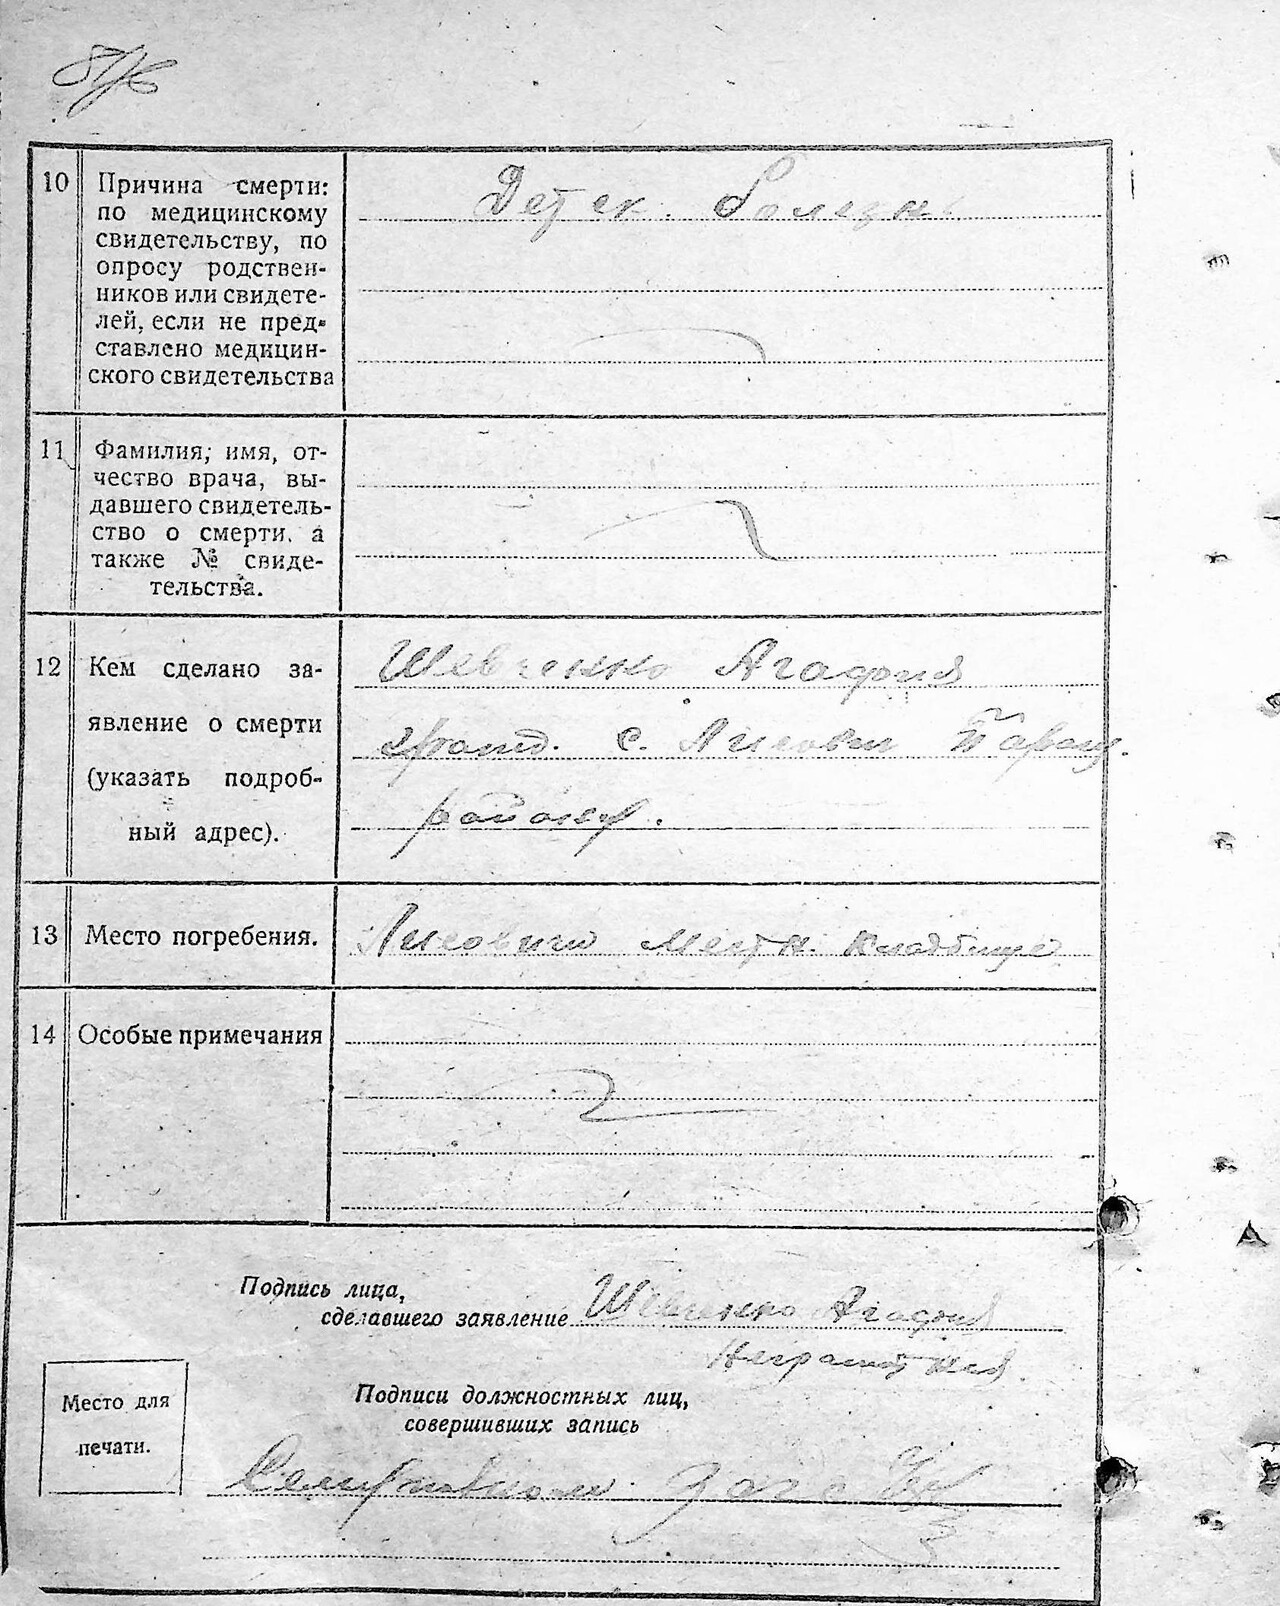 10 Причина смерти:
по медицинскому
свидетельству, по
опросу родствен-
ников или свидете-
лей, если не пред-
ставлено медицин-
ского свидетельства
Детск. болезнь
11 Фамилия, имя, от-
чество врача, вы-
давшего свидетель-
ство о смерти, а
также № свиде-
тельства.
12 Кем сделано за-
явление о смерти
(указать подроб-
ный адрес).
Шевченко Агафия
с. Лисович Таращ.
району.
13 Место погребения.
Лисовичи местн. кладбище
14 Особые примечания
Подпись лица,
сделавшего заявление Шевченко Агафия
Неграмотная.
Место для
печати.
Подписи должностных лиц,
совершивших запись